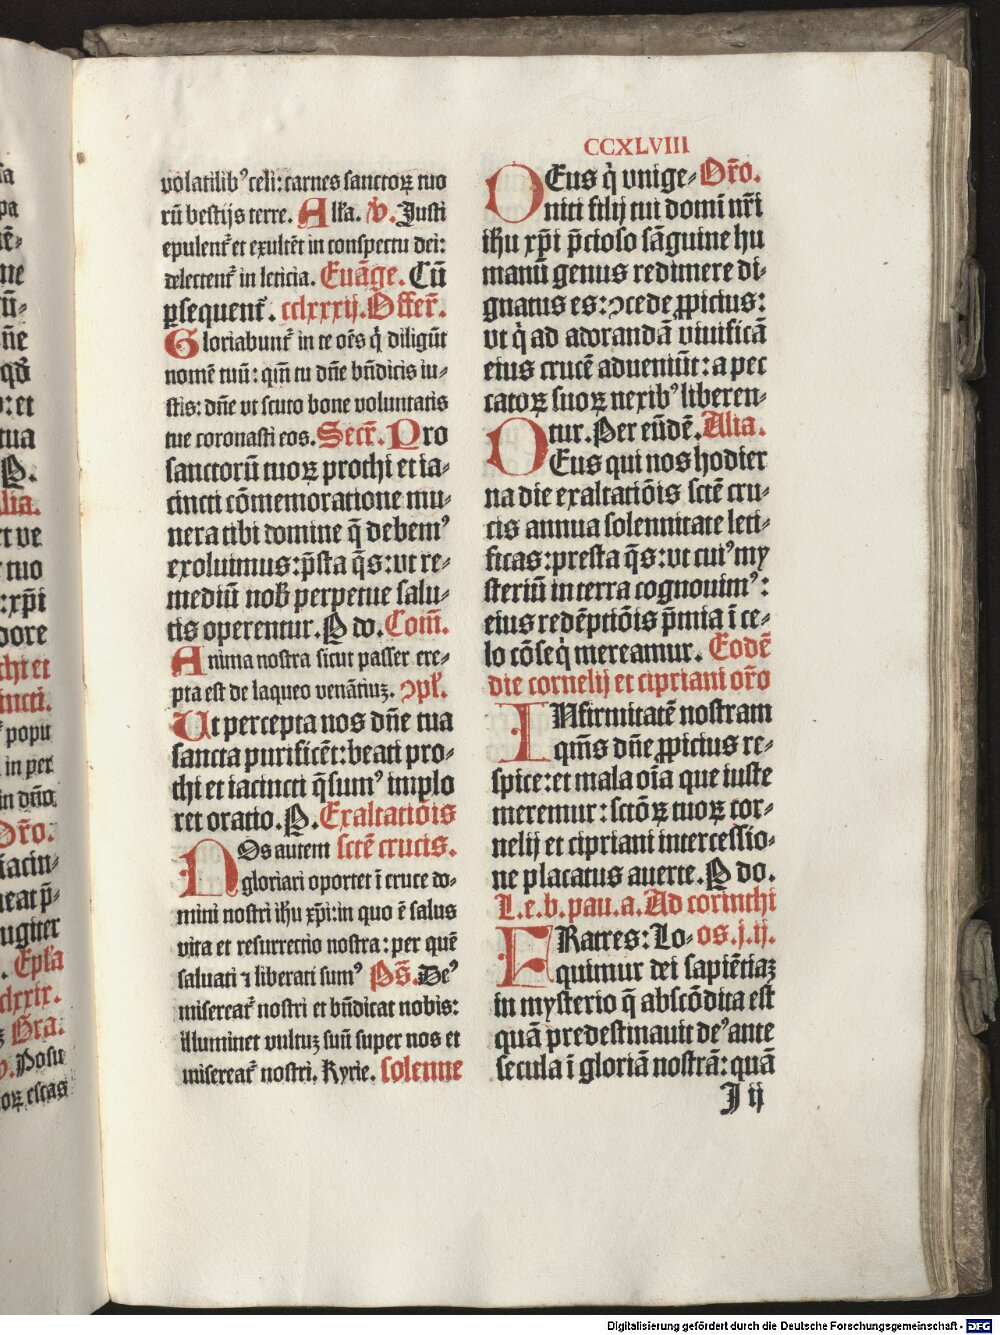 CCXLVIII
volatilibꝰ celi: carnes sanctoꝝ tuo
rū bestijs terre. Alł'a. ꝟ. Justi
epulent᷑ et exultēt in conspectu dei:
delectent᷑ in leticia. Euāge. Cū
ꝑsequent᷑. cclxxxij. Offer̄.
Gloriabunt᷑ in te oēs q̇ diligūt
nomē tuū: qm̄ tu dn̄e bn̄dicis iu⸗
stis: dn̄e vt scuto bone voluntatis
tue coronasti eos. Secr̄. Pro
sanctorū tuoꝝ prothi et ia⸗
cincti cōmemoratione mu⸗
nera tibi domine q̄ debemꝰ
exoluimus: p̄sta q̄s: vt re⸗
mediū nob̄ perpetue salu⸗
tis operentur. P do. Com̄.
Anima nostra sicut passer ere⸗
pta est de laqueo venātiuꝫ. ꝯpł.
Ut percepta nos dn̄e tua
sancta purificēt: beati pro⸗
thi et iacincti q̄sumꝰ implo
ret oratio. P. Exaltatiōis
NOs autem sct̄e crucis.
gloriari oportet ī cruce do⸗
mini nostri ihu xp̄i: in quo ē salus
vita et resurrectio nostra: per quē
saluati ⁊ liberati sumꝰ Ps̄. Deꝰ
misereat᷑ nostri et bn̄dicat nobis:
illuminet vultuꝫ suū super nos et
misereat᷑ nostri. Kyrie. solenne
DEus q̇ vnige⸗ Or̄o.
niti filij tui domī nr̄i
ihu xp̄i p̄cioso sāguine hu
manū genus redimere di⸗
gnatus es: ꝯcede ꝓpicius:
vt q̇ ad adorandā viuificā
eius crucē adueniūt: a pec
catoꝝ suoꝝ nexibꝰ liberen⸗
tur. Per eūdē. Alia.
DEus qui nos hodier
na die exaltatiōis sctē cru⸗
cis annua solennitate leti⸗
ficas: presta q̄s: vt cuiꝰ my
steriū in terra cognouimꝰ:
eius redēptiōis p̄mia ī ce⸗
lo cōseq̇ mereamur. Eodē
die cornelij et cipriani or̄o
INfirmitatē nostram
qm̄s dn̄e ꝓpicius re⸗
spice: et mala oīa que iuste
meremur: sctōꝝ tuoꝝ cor⸗
nelij et cipriani intercessio⸗
ne placatus auerte. P do.
L. e. b. pau. a. Ad corinthi
FRatres: Lo⸗ os. j. ij.
quimur dei sapiētiaꝫ
in mysterio q̄ abscōdita est
quā predestinauit deꝰ ante
secula ī gloriā nostrā: quā
J ij
Digitalisierung gefördert durch die Deutsche Forschungsgemeinschaft - DFG